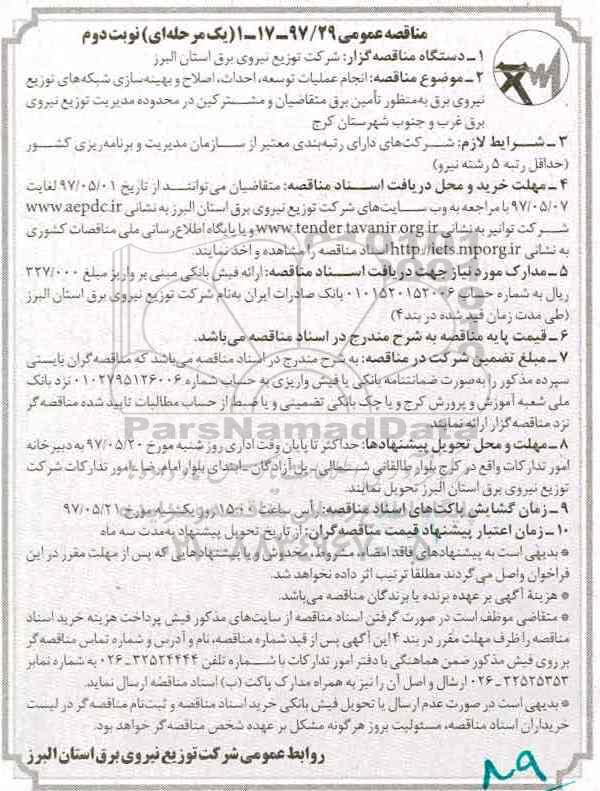 مناقصه عمومی ۹۷/۲۹-۱۷-۱ (یک مرحله‌ای) نوبت دوم
۱ـ دستگاه مناقصه‌گزار: شرکت توزیع نیروی برق استان البرز
۲ـ موضوع مناقصه: انجام عملیات توسعه، احداث، اصلاح و بهینه‌سازی شبکه‌های توزیع
نیروی برق به‌منظور تأمین برق متقاضیان و مشترکین در محدوده مدیریت توزیع نیروی
برق غرب و جنوب شهرستان کرج
۳ـ شرایط لازم: شرکت‌های دارای رتبه‌بندی معتبر از سازمان مدیریت و برنامه‌ریزی کشور
(حداقل رتبه ۵ رشته نیرو)
۴ـ مهلت خرید و محل دریافت اسناد مناقصه: متقاضیان می‌توانند از تاریخ ۹۷/۰۵/۰۱ لغایت
۹۷/۰۵/۰۷ با مراجعه به وب سایت‌های شرکت توزیع نیروی برق استان البرز به نشانی www.aepdc.ir
شرکت توانیر به نشانی www.tender.tavanir.org.ir و یا پایگاه اطلاع‌رسانی ملی مناقصات کشوری
به نشانی http://iets.mporg.ir اسناد مناقصه را مشاهده و اخذ نمایند.
۵ـ مدارک مورد نیاز جهت دریافت اسناد مناقصه: ارائه فیش بانکی مبنی بر واریز مبلغ ۳۲۷/۰۰۰
ریال به شماره حساب ۰۱۰۱۵۲۰۱۵۲۰۰۶ بانک صادرات ایران به‌نام شرکت توزیع نیروی برق استان البرز
(طی مدت زمان قید شده در بند ۴)
۶ـ قیمت پایه مناقصه به شرح مندرج در اسناد مناقصه می‌باشد.
۷ـ مبلغ تضمین شرکت در مناقصه: به شرح مندرج در اسناد مناقصه می‌باشد که مناقصه‌گران بایستی
سپرده مذکور را به‌صورت ضمانتنامه بانکی یا فیش واریزی به حساب شماره ۰۱۰۲۷۹۵۱۲۶۰۰۶ نزد بانک
ملی شعبه آموزش و پرورش کرج و یا چک بانکی تضمینی و یا ضبط از حساب مطالبات تایید شده مناقصه‌گر
نزد مناقصه‌گزار ارائه نمایند.
ParsNamadData
۸ـ مهلت و محل تحویل پیشنهادها: حداکثر تا پایان وقت اداری روز شنبه مورخ ۹۷/۰۵/۲۰ به دبیرخانه
امور تدارکات واقع در کرج بلوار طالقانی شمالی ـ پل آزادگان ـ ابتدای بلوار امام رضا ـ امور تدارکات شرکت
توزیع نیروی برق استان البرز تحویل نمایند.
۹ـ زمان گشایش پاکت‌های اسناد مناقصه: رأس ساعت ۱۵:۰۰ روز یکشنبه مورخ ۹۷/۰۵/۲۱
۱۰ـ زمان اعتبار پیشنهاد قیمت مناقصه‌گران: از تاریخ تحویل پیشنهاد به‌مدت سه ماه
* بدیهی است به پیشنهادهای فاقد امضاء، مشروط، مخدوش و یا پیشنهادهایی که پس از مهلت مقرر در این
فراخوان واصل می‌گردند مطلقا ترتیب اثر داده نخواهد شد.
* هزینه آگهی بر عهده برنده یا برندگان مناقصه می‌باشد.
* متقاضی موظف است در صورت گرفتن اسناد مناقصه از سایت‌های مذکور فیش پرداخت هزینه خرید اسناد
مناقصه را ظرف مهلت مقرر در بند ۴ این آگهی پس از قید شماره مناقصه، نام و آدرس و شماره تماس مناقصه‌گر
بر روی فیش مذکور ضمن هماهنگی با دفتر امور تدارکات با شماره تلفن ۳۲۵۲۴۴۴۴ـ۰۲۶ به شماره نمابر
۳۲۵۲۵۳۵۳ـ۰۲۶ ارشال و اصل آن را نیز به همراه مدارک پاکت (ب) اسناد مناقصه ارسال نماید.
* بدیهی است در صورت عدم ارسال یا تحویل فیش بانکی خرید اسناد مناقصه و ثبت‌نام مناقصه‌گر در لیست
خریداران اسناد مناقصه، مسئولیت بروز هرگونه مشکل بر عهده شخص مناقصه‌گر خواهد بود.
روابط عمومی شرکت توزیع نیروی برق استان البرز
۸۹